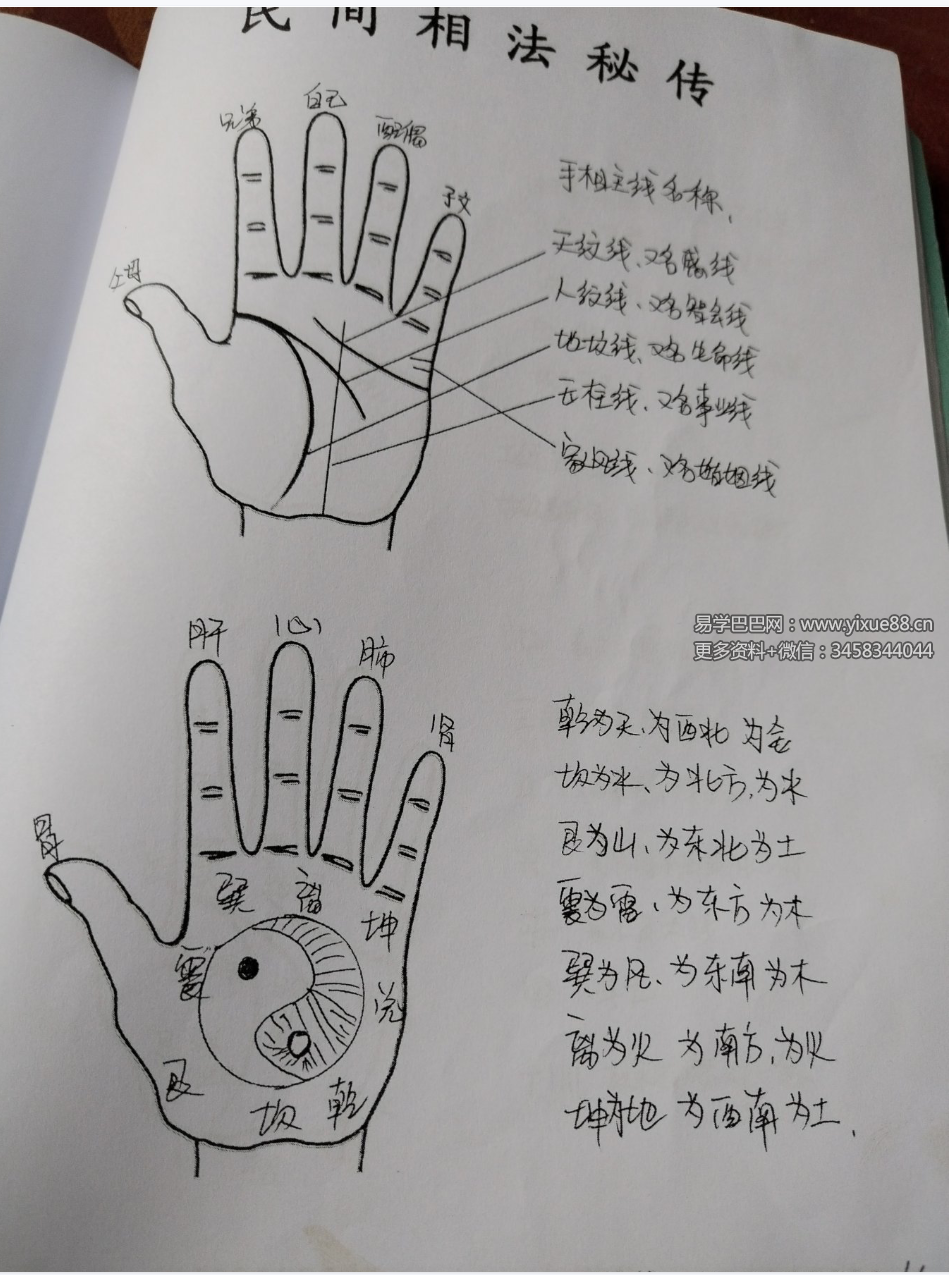 民间相法秘传
兄弟
自己
配偶
子女
父母
手相主线名称、
天纹线、又名感线
人纹线、又名智会线
地纹线、又名生命线
天柱线、又名事业线
家风线、又名婚姻线
易学巴巴网：www.yixue88.cn
更多资料+微信：3458344044
肝
心
肺
肾
巽
离
坤
震
兑
艮
坎
乾
乾为天、为西北 为金
坎为水、为北方，为水
艮为山、为东北为土
震为雷、为东方为木
巽为风、为东南为木
离为火 为南方，为火
坤为地 为西南为土、